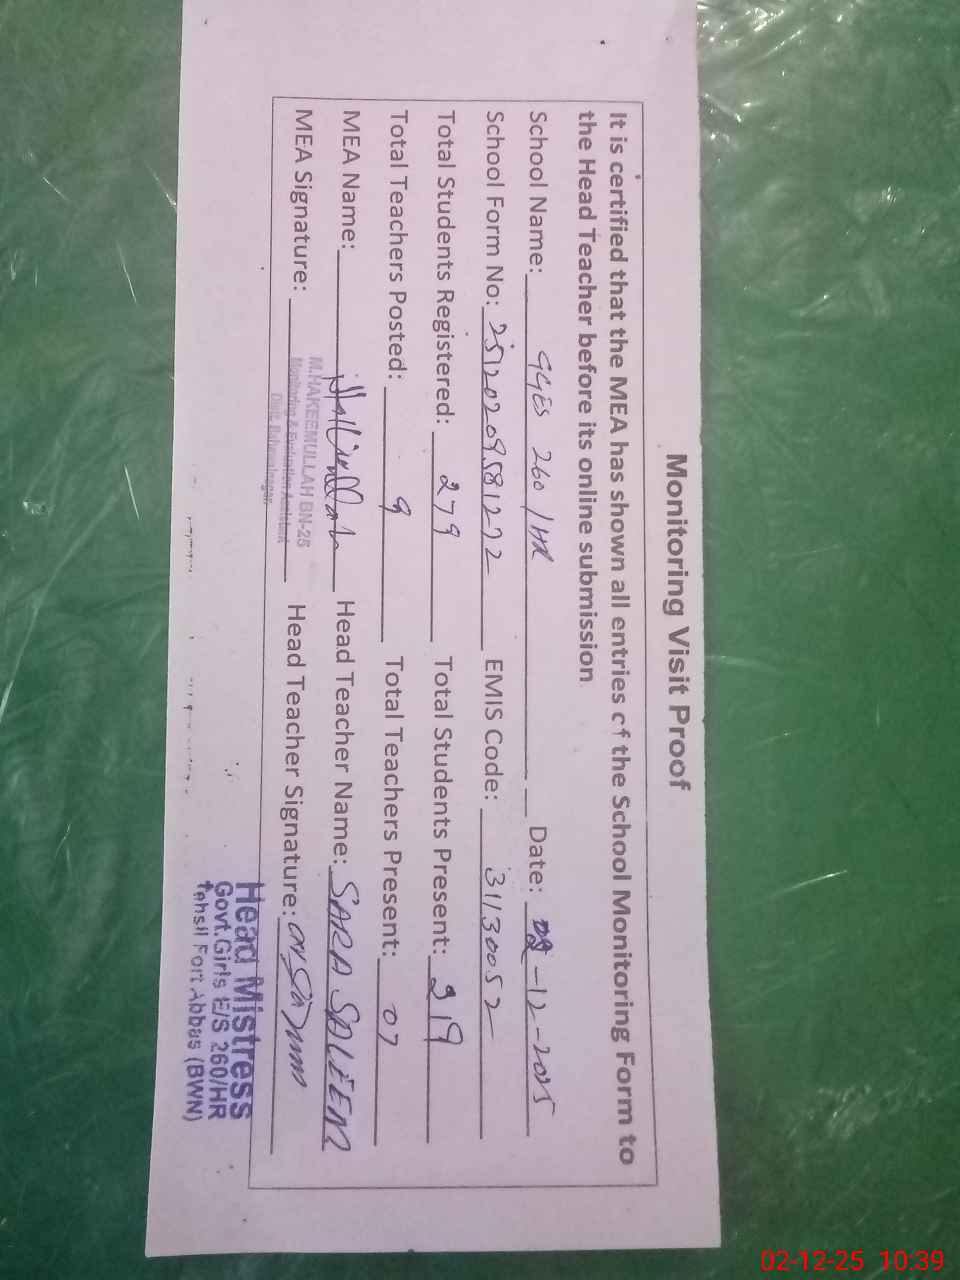 Monitoring Visit Proof
It is certified that the MEA has shown all entries of the School Monitoring Form to
the Head Teacher before its online submission
School Name: GGES 260/HR Date: 02-12-2025
School Form No: EMIS Code: 31130052
Total Students Registered: 279 Total Students Present: 219
Total Teachers Posted: 9 Total Teachers Present: 07
MEA Name: Head Teacher Name: SARA SALEEM
M.HAKEEMULLAH BN-25
Monitoring & Evaluation Assistant
Distt. Bahawalnagar
MEA Signature: Head Teacher Signature:
Head Mistress
Govt.Girls E/S 260/HR
Tehsil Fort Abbas (BWN)
02-12-25 10:39